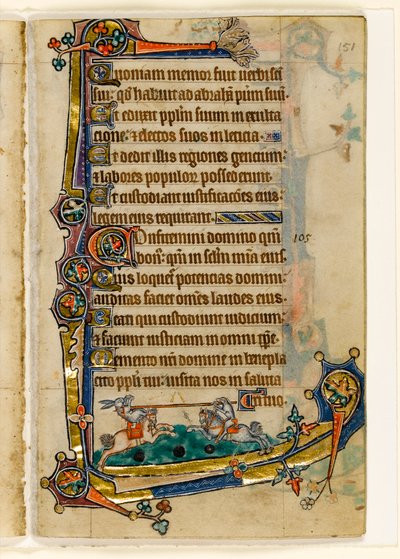 151
Quoniam memor fuit verbi sci
sui: qđ habuit ad abrahā puerū suū.
Et eduxit pplm suum in exulta
cione: & electos suos in leticia.
Et dedit illis regiones gencium:
& labores populor possederunt.
Et custodiant iustificacōēs eius:
legem eius requirant.
Confitemini domino qm̄
bon': qm̄ in sclm mīa eius. 105
Quis loquet' potencias domini:
auditas faciet om̄es laudes eius.
Beati qui custodiunt iudicium:
& faciunt iusticiam in omni tp̄e.
Memento nr̄i domine in benepla
cito ppli tui: visita nos in saluta
ri tuo.